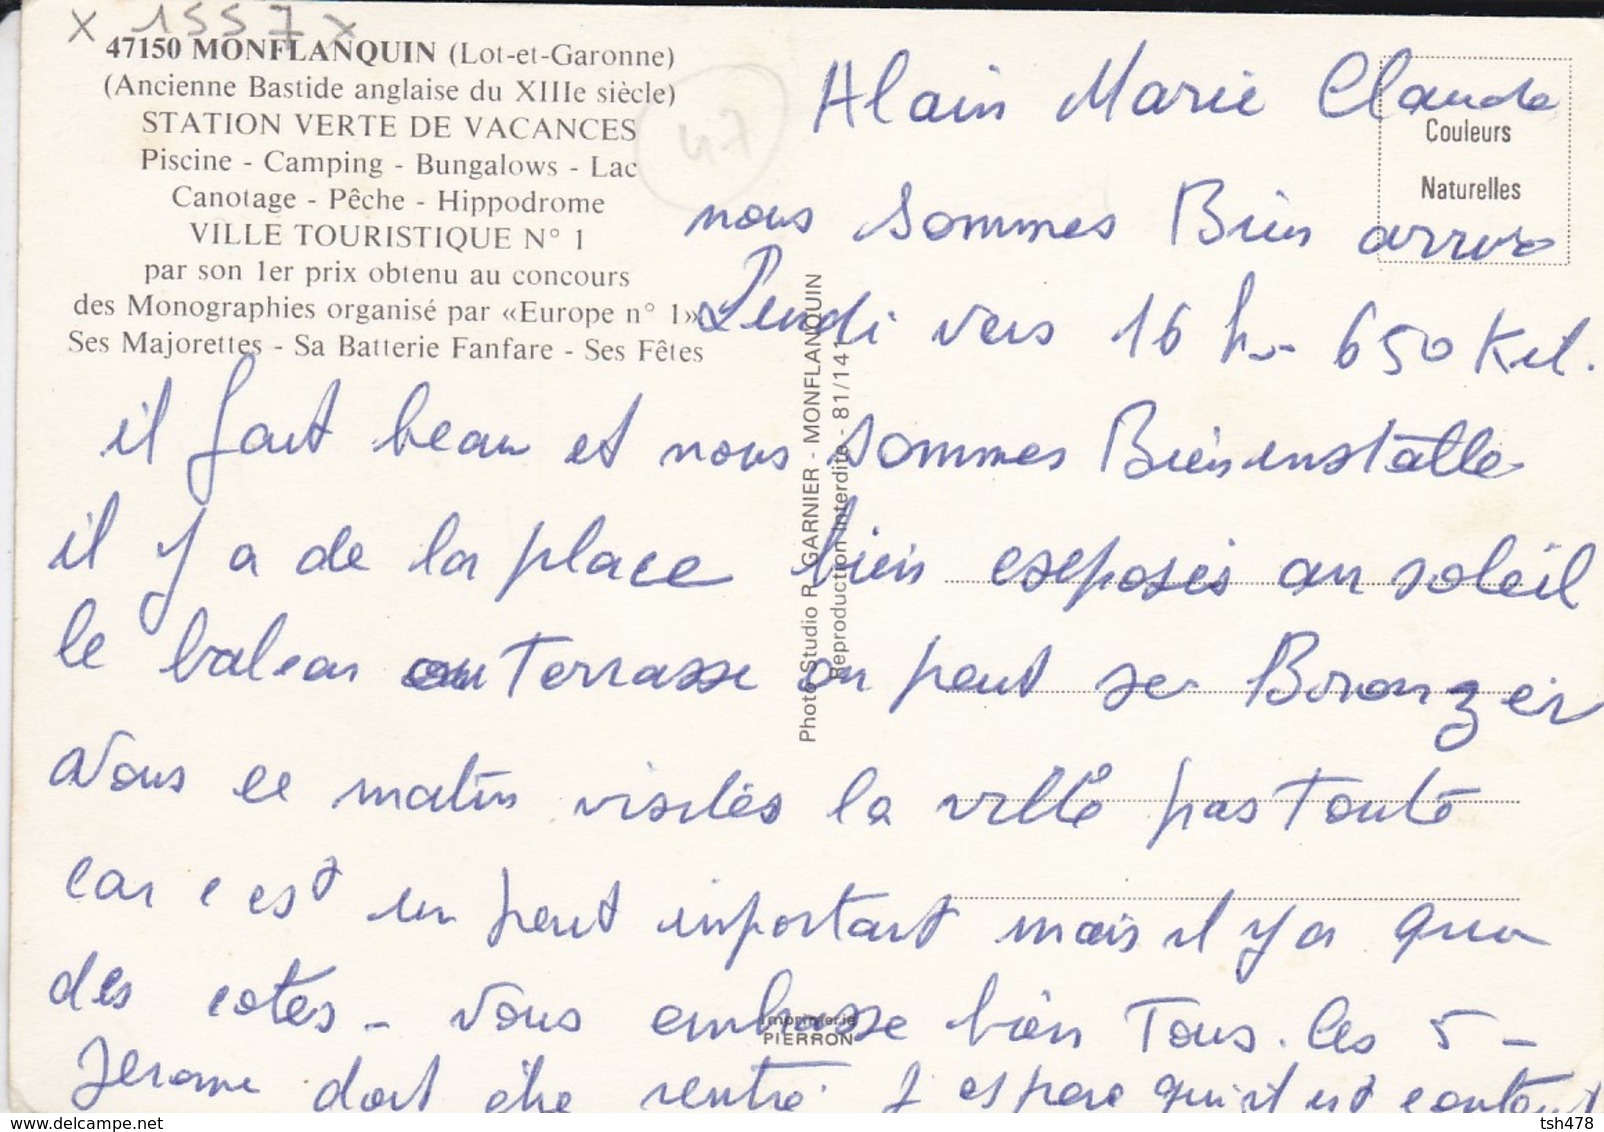 x 1557 x
47150 MONFLANQUIN (Lot-et-Garonne)
(Ancienne Bastide anglaise du XIIIe siècle)
STATION VERTE DE VACANCES
Piscine - Camping - Bungalows - Lac
Canotage - Pêche - Hippodrome
VILLE TOURISTIQUE N° 1
par son 1er prix obtenu au concours
des Monographies organisé par «Europe n° 1»
Ses Majorettes - Sa Batterie Fanfare - Ses Fêtes
47
Couleurs
Naturelles
Photo Studio R. GARNIER - MONFLANQUIN
Reproduction interdite - 81/141
Alain Marie Claude
nous sommes Bien arrivé
Lundi vers 16 h - 650 Kil.
il fait beau et nous sommes Bien installe
il y a de la place bien exposés au soleil
le balcon ou Terrasse on peut se Bronzer
Nous ce matin visités la ville pas Toute
car c est un peut important mais il y a que
des cotes - Vous embrasse bien Tous. les 5 -
Jerome doit être rentré J espere qu'il est content
imprimerie
PIERRON
www.delcampe.net
tsh478